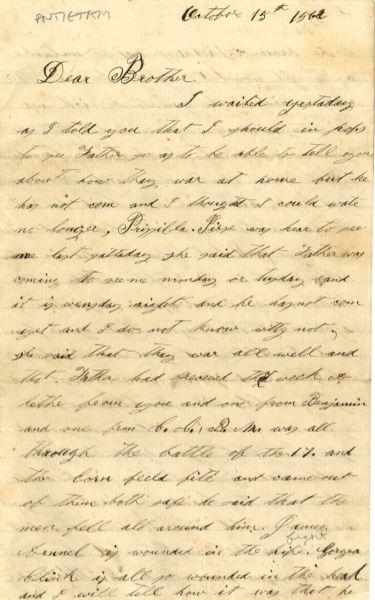 ANTIETAM
October 15th 1862
Dear Brother
I waited yestaday
as I told you that I should in hops
to see Father so as to be able to tell you
about how thay war at home but he
has not com and I thought I could wate
no longer, Prissilla was hear to see
me last yestaday she said that Father was
coming to see me monday or tusday and
it is wensday night and he has not com
yet and I do not know why not,
she said that thay war all well and
that Father had received week
lether from you and one from Benjamin
and one from C. C. M. was all
through the battle of the 17. and
the Corn feeld fite and came out
of them both safe he said that the
men fell all around him. James
is wounded in the hipe. Gorgea
fight
Clark is all so wounded in the head
and I will tell how it was that he